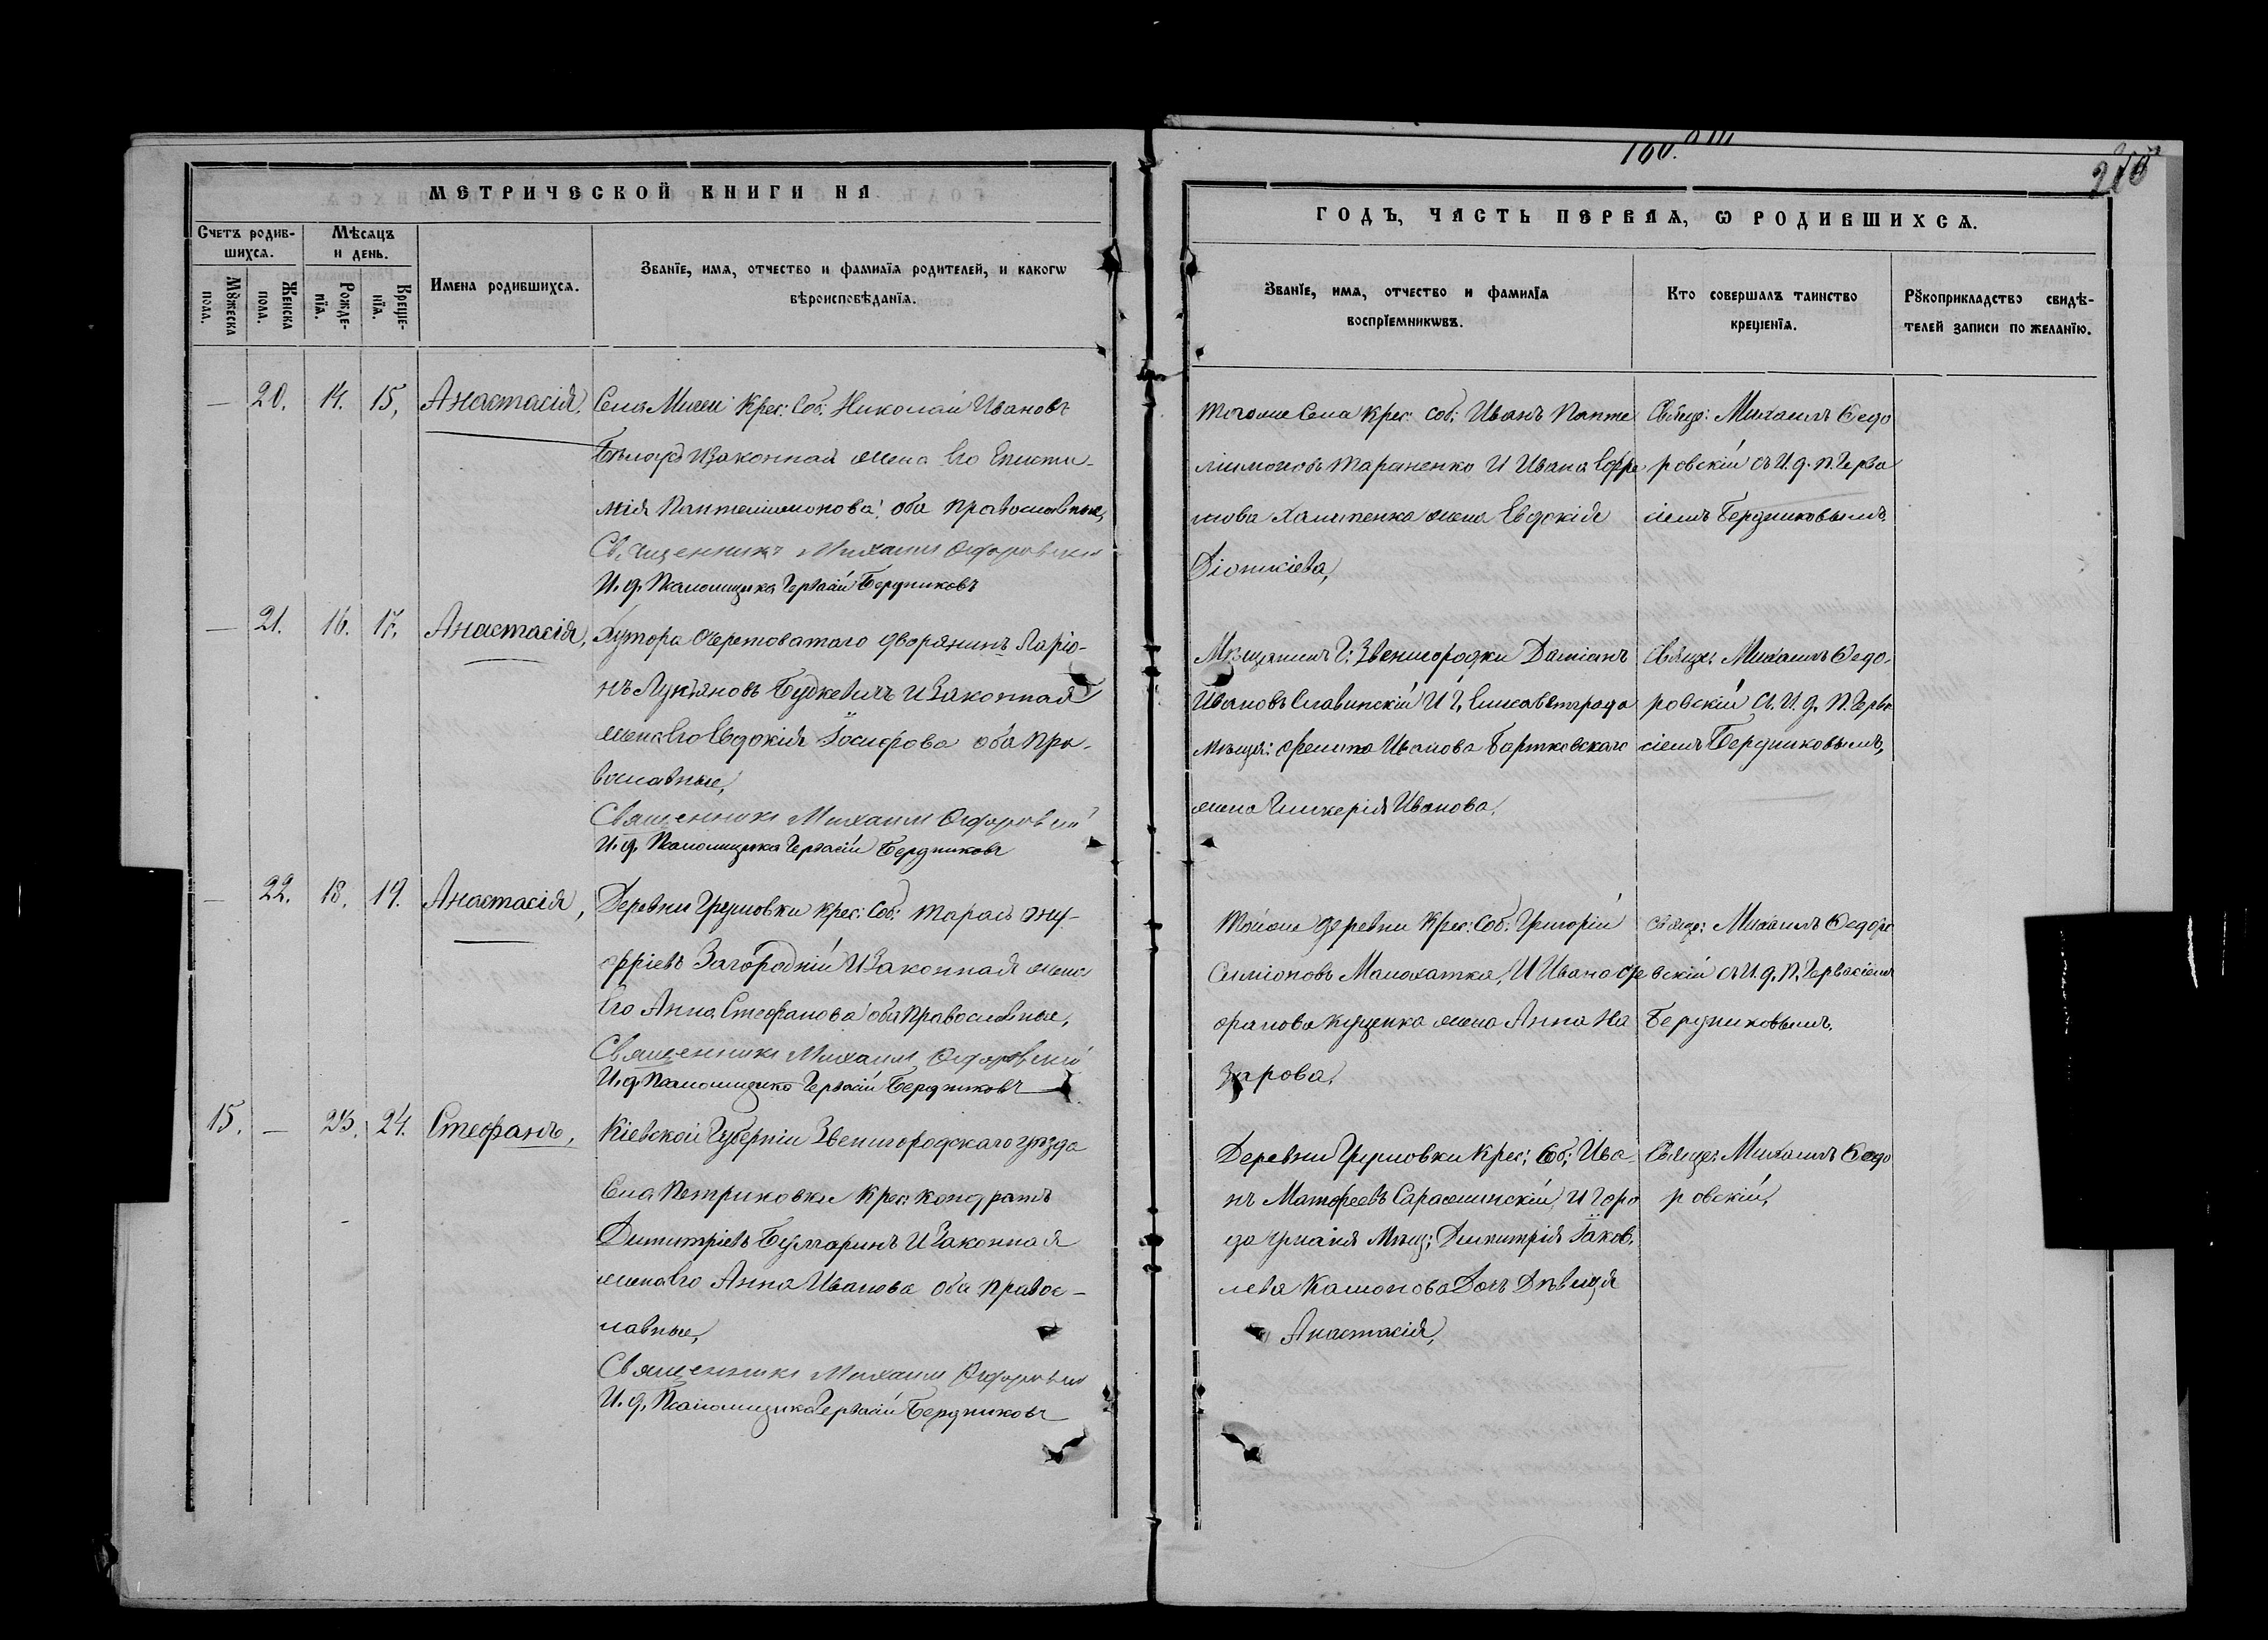 МЕТРИЧЕСКОЙ КНИГИ НА
Счетъ родив-
шихсѧ.
Мѣсѧцъ
и день.
Мꙋжеска
пола.
Женска
пола.
Рожде-
нїѧ.
Креще-
нїѧ.
Имена родившихсѧ.
Званїе, имѧ, отчество и фамилїѧ родителей, и какогѡ
вѣроисповѣданїѧ.
— 20. 14. 15, Анастасія.
Села Крес: Соб: Николай Ивановъ
Бѣлоусъ и Законная жена Его
мія Пантелиимонова: оба православные,
Священникъ Михаилъ Ѳедоровскій
И. д. Псаломщика Гервасій Бердниковъ
— 21. 16. 17. Анастасія,
Хутора Очеретоватаго дворянинъ Ларіо-
нъ Лукъяновъ Будкевичъ и Законная
жена Его Евдокія Іосифова оба пра-
вославные,
Священникъ Михаилъ Ѳедоровскій
И. д. Псаломщика Гервасій Бердниковъ
— 22. 18. 19. Анастасія,
Деревни Крес: Соб: Тарасъ Ону-
фріевъ Загородній и Законная жена
Его Анна Стефанова оба православные,
Священникъ Михаилъ Ѳедоровскій
И. д. Псаломщика Гервасій Бердниковъ
15. — 23. 24. Стефанъ,
Кіевской Губерніи Звенигородскаго уѣзда
Села Петриковки Крес: Кондратъ
Димитріевъ Булгаринъ и Законная
жена Его Анна Иванова оба правос-
лавные,
Священникъ Михаилъ Ѳедоровскій
И. д. Псаломщика Гервасій Бердниковъ
160.
ГОДЪ, ЧАСТЬ ПЕРВАѦ, Ѡ РОДИВШИХСѦ.
Званїе, имѧ, отчество и фамилїѧ
воспрїемникѡвъ.
Кто совершалъ таинство
крещенїѧ.
Рꙋкоприкладство свидѣ-
телей записи по желанїю.
Тогоже Села Крес: Соб: Иванъ Панте
лиимоновъ Тараненко и Ивана Софро
нова жена Евдокія
Діонисіева,
Священ: Михаилъ Ѳедо
ровскій съ И. д. П. Герва
сіемъ Бердниковымъ.
Мѣщанинъ Г: Звенигородки Даміанъ
Ивановъ Славинскій и Г. Елисаветграда
мѣщан: Иванова Бартковскаго
жена Гликерія Иванова.
Священ: Михаилъ Ѳедо-
ровскій съ И. д. П. Герва
сіемъ Бердниковымъ,
Тойже деревни Крес: Соб: Григорій
Симіоновъ Малохатка, и Ивана
жена Анна На
зарова,
Священ: Михаилъ Ѳедоро
вскій съ И. д. П. Гервасіемъ
Бердниковымъ.
Деревни Крес: Соб: Ива-
нъ Матфеевъ Саражинскій, и Горо
да Уманя Мѣщ: Димитрія Іаков,
лева Дочь Дѣвица
Анастасія,
Священ: Михаилъ Ѳедо
ровскій,